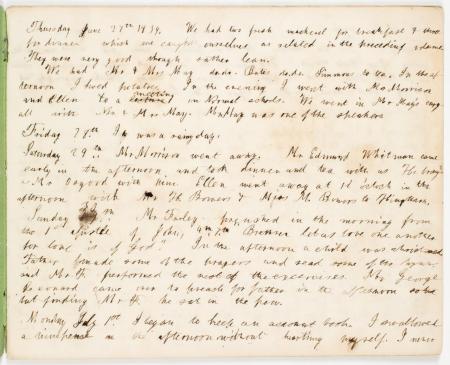 Thursday June 27th 1839. We had two fresh mackerel for breakfast & three
for dinner which we caught ourselves as related in the preceding volume
They were very good though rather lean.
We had Mr & Mrs May and Simmons to tea. In the af
ternoon I hoed potatoes. In the evening I went with Mr Morrison
and Ellen to a meeting on Normal schools. We went in Mr Mays carry
all with Mr & Mrs May. Mr May was one of the speakers
Friday 28th It was a rainy day.
Saturday 29th Mr Morrison went away. Mr Edmund Whitman came
early in the afternoon, and took dinner and tea with us He brought
a Mr Osgood with him. Ellen went away at 12 o'clock in the
afternoon with Mr Th Bowers & Miss M Bowers to Hingham.
Sunday 30th Mr Farley preached in the morning from
the 1st Epistle of John, 4th 7th Brethren let us love one another
for love is of God". In the afternoon a child was christened
Father made some of the prayers and read some of the hymns
and Mr F. performed the rest of the exercises. Mr George
Leonard came over to preach for father in the afternoon
but finding Mr F. he sat in the pew.
Monday July 1st I began to keep an account book. I swallowed
a in the afternoon without hurting myself. I never